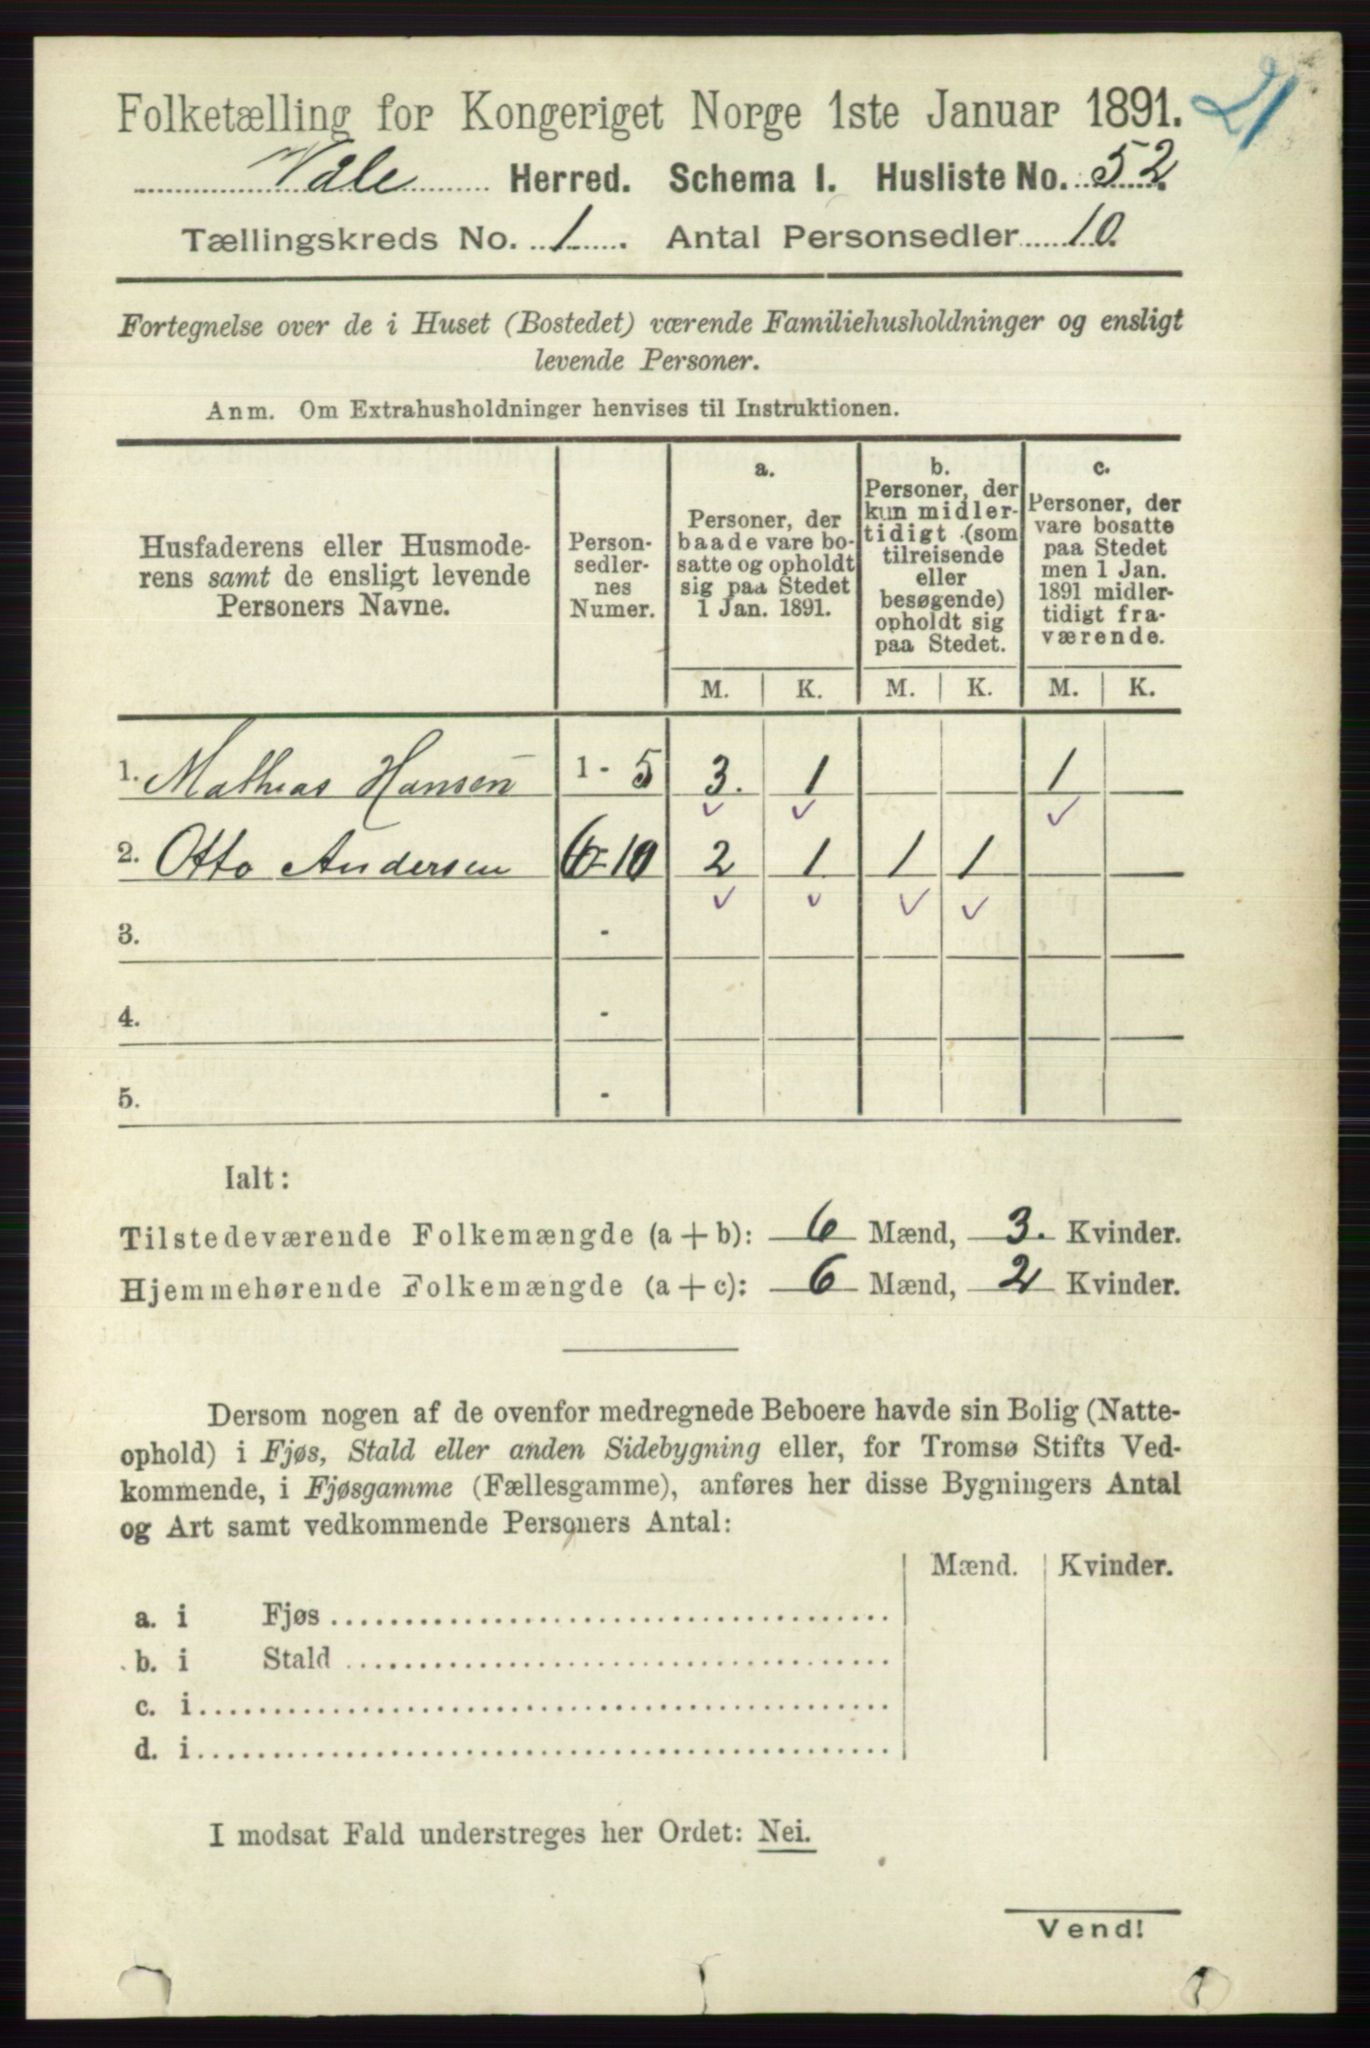 Folketælling for Kongeriget Norge 1ste Januar 1891.
21
Våle Herred. Schema I. Husliste No. 52
Tællingskreds No. 1. Antal Personsedler 10
Fortegnelse over de i Huset (Bostedet) værende Familiehusholdninger og ensligt
levende Personer.
Anm. Om Extrahusholdninger henvises til Instruktionen.
Husfaderens eller Husmode-
rens samt de ensligt levende
Personers Navne.
Person-
sedler-
nes
Numer.
a.
Personer, der
baade vare bo-
satte og opholdt
sig paa Stedet
1 Jan. 1891.
b.
Personer, der
kun midler-
tidigt (som
tilreisende
eller
besøgende)
opholdt sig
paa Stedet.
c.
Personer, der
vare bosatte
paa Stedet
men 1 Jan.
1891 midler-
tidigt fra-
værende.
M. K. M. K. M. K.
1. Mathias Hansen 1 - 5 3. 1 1
2. Otto Andersen 6-10 2 1 1 1
3. -
4. -
5. -
Ialt:
Tilstedeværende Folkemængde (a + b): 6 Mænd, 3. Kvinder.
Hjemmehørende Folkemængde (a + c): 6 Mænd, 2 Kvinder.
Dersom nogen af de ovenfor medregnede Beboere havde sin Bolig (Natte-
ophold) i Fjøs, Stald eller anden Sidebygning eller, for Tromsø Stifts Ved-
kommende, i Fjøsgamme (Fællesgamme), anføres her disse Bygningers Antal
og Art samt vedkommende Personers Antal:
Mænd. Kvinder.
a. i Fjøs
b. i Stald
c. i
d. i
I modsat Fald understreges her Ordet: Nei.
Vend!